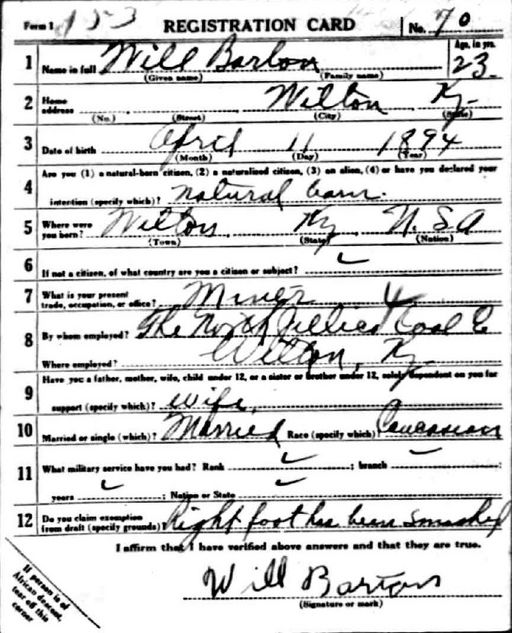 Form 1 153 REGISTRATION CARD No. 70
1 Name in full Will Barton Age, in yrs. 23
(Given name) (Family name)
2 Home address Wilton Ky.
(No.) (Street) (City) (State)
3 Date of birth April 11 1894
(Month) (Day) (Year)
4 Are you (1) a natural-born citizen, (2) a naturalized citizen, (3) an alien, (4) or have you declared your
intention (specify which)? natural born.
5 Where were you born? Wilton Ky U.S.A
(Town) (State) (Nation)
6 If not a citizen, of what country are you a citizen or subject?
7 What is your present trade, occupation, or office? Miner 4
8 By whom employed? The North Jellico Coal Co
Where employed? Wilton, Ky.
9 Have you a father, mother, wife, child under 12, or a sister or brother under 12, solely dependent on you for
support (specify which)? wife,
10 Married or single (which)? Married Race (specify which)? Caucasian
11 What military service have you had? Rank ; branch
years ; Nation or State
12 Do you claim exemption from draft (specify grounds)? Right foot has been smashed
I affirm that I have verified above answers and that they are true.
Will Barton
(Signature or mark)
If person is of
African descent,
tear off this
corner